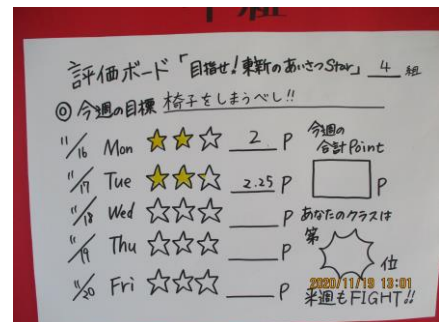 評価ボード「目指せ!東新のあいさつStar」 4 組
◎今週の目標 椅子をしまうべし!!
11/16 Mon ★★☆ 2 P
11/17 Tue ★★☆ 2.25 P
11/18 Wed ☆☆☆ P
11/19 Thu ☆☆☆ P
11/20 Fri ☆☆☆ P
今週の
合計Point
P
あなたのクラスは
第 位
2020/11/19 13:01
来週もFIGHT!!